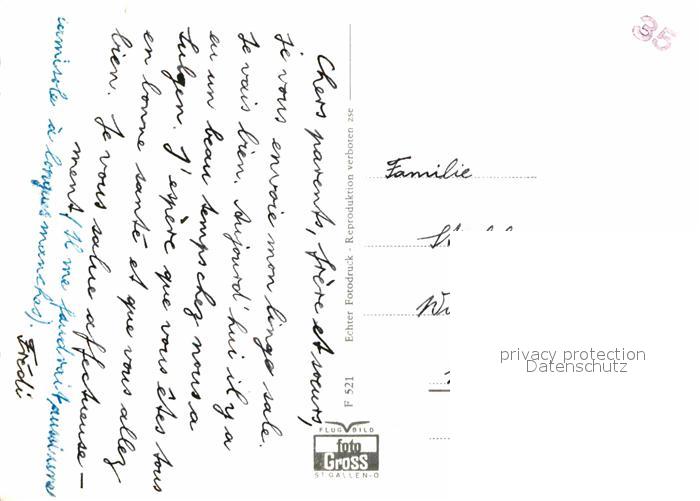 Chers parents, frère et sœurs,
je vous envoie mon linge sale.
Je vais bien. Aujourd'hui il y a
eu un beau temps chez nous a
Sulgen. J'espère que vous êtes tous
en bonne santé et que vous allez
bien. Je vous salue affectueuse-
ment. (Il me faudrait aussi une
camisole à longues manches).
Fredi
Echter Fotodruck - Reproduktion verboten zse
F 521
FLUGBILD
foto
Gross
ST. GALLEN-O
35
Familie
privacy protection
Datenschutz